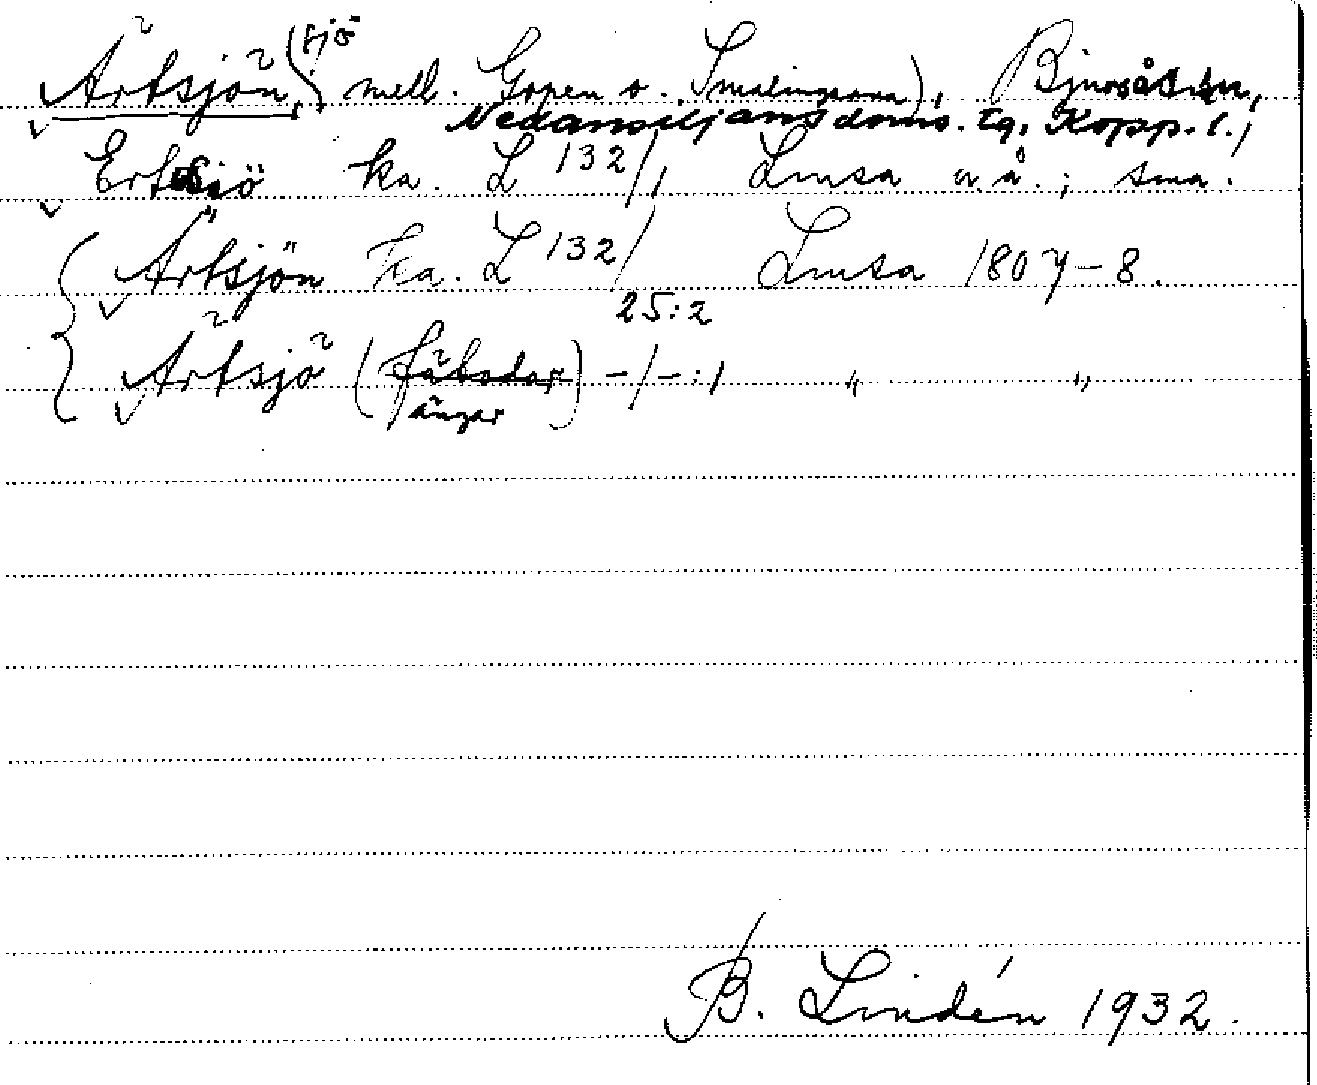 Ärtsjön, (sjö mell. Gopen o. Smälingarna), Bjursåsen,
Nedansiljans doms. tg. Kopp. l.,
Ertsjö ka. L 132/1 Lmsa u å.; sma.
Ärtsjön ka. L 132/ Lmsa 1807-8.
25:2
Ärtsjö (fäbodar) -/-:1 " "
ängar
B. Lindén 1932.